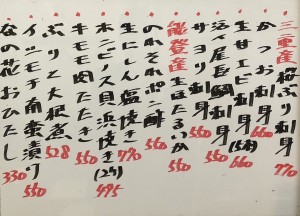 三重産 桜ぶり刺身 770
かつお刺身 660
生サエビ刺身(5本) 660
活〆尾長鯛刺身 550
サヨリ刺身 550
能登産 生ほたるいか 550
のれそれポン酢
生にしん塩焼き 770
ホンビノス貝浜焼き(2ケ) 495
牛モモ肉たたき 550
ぶりと大根煮 528
イイモチ南蛮漬け 550
なの花おひたし 330